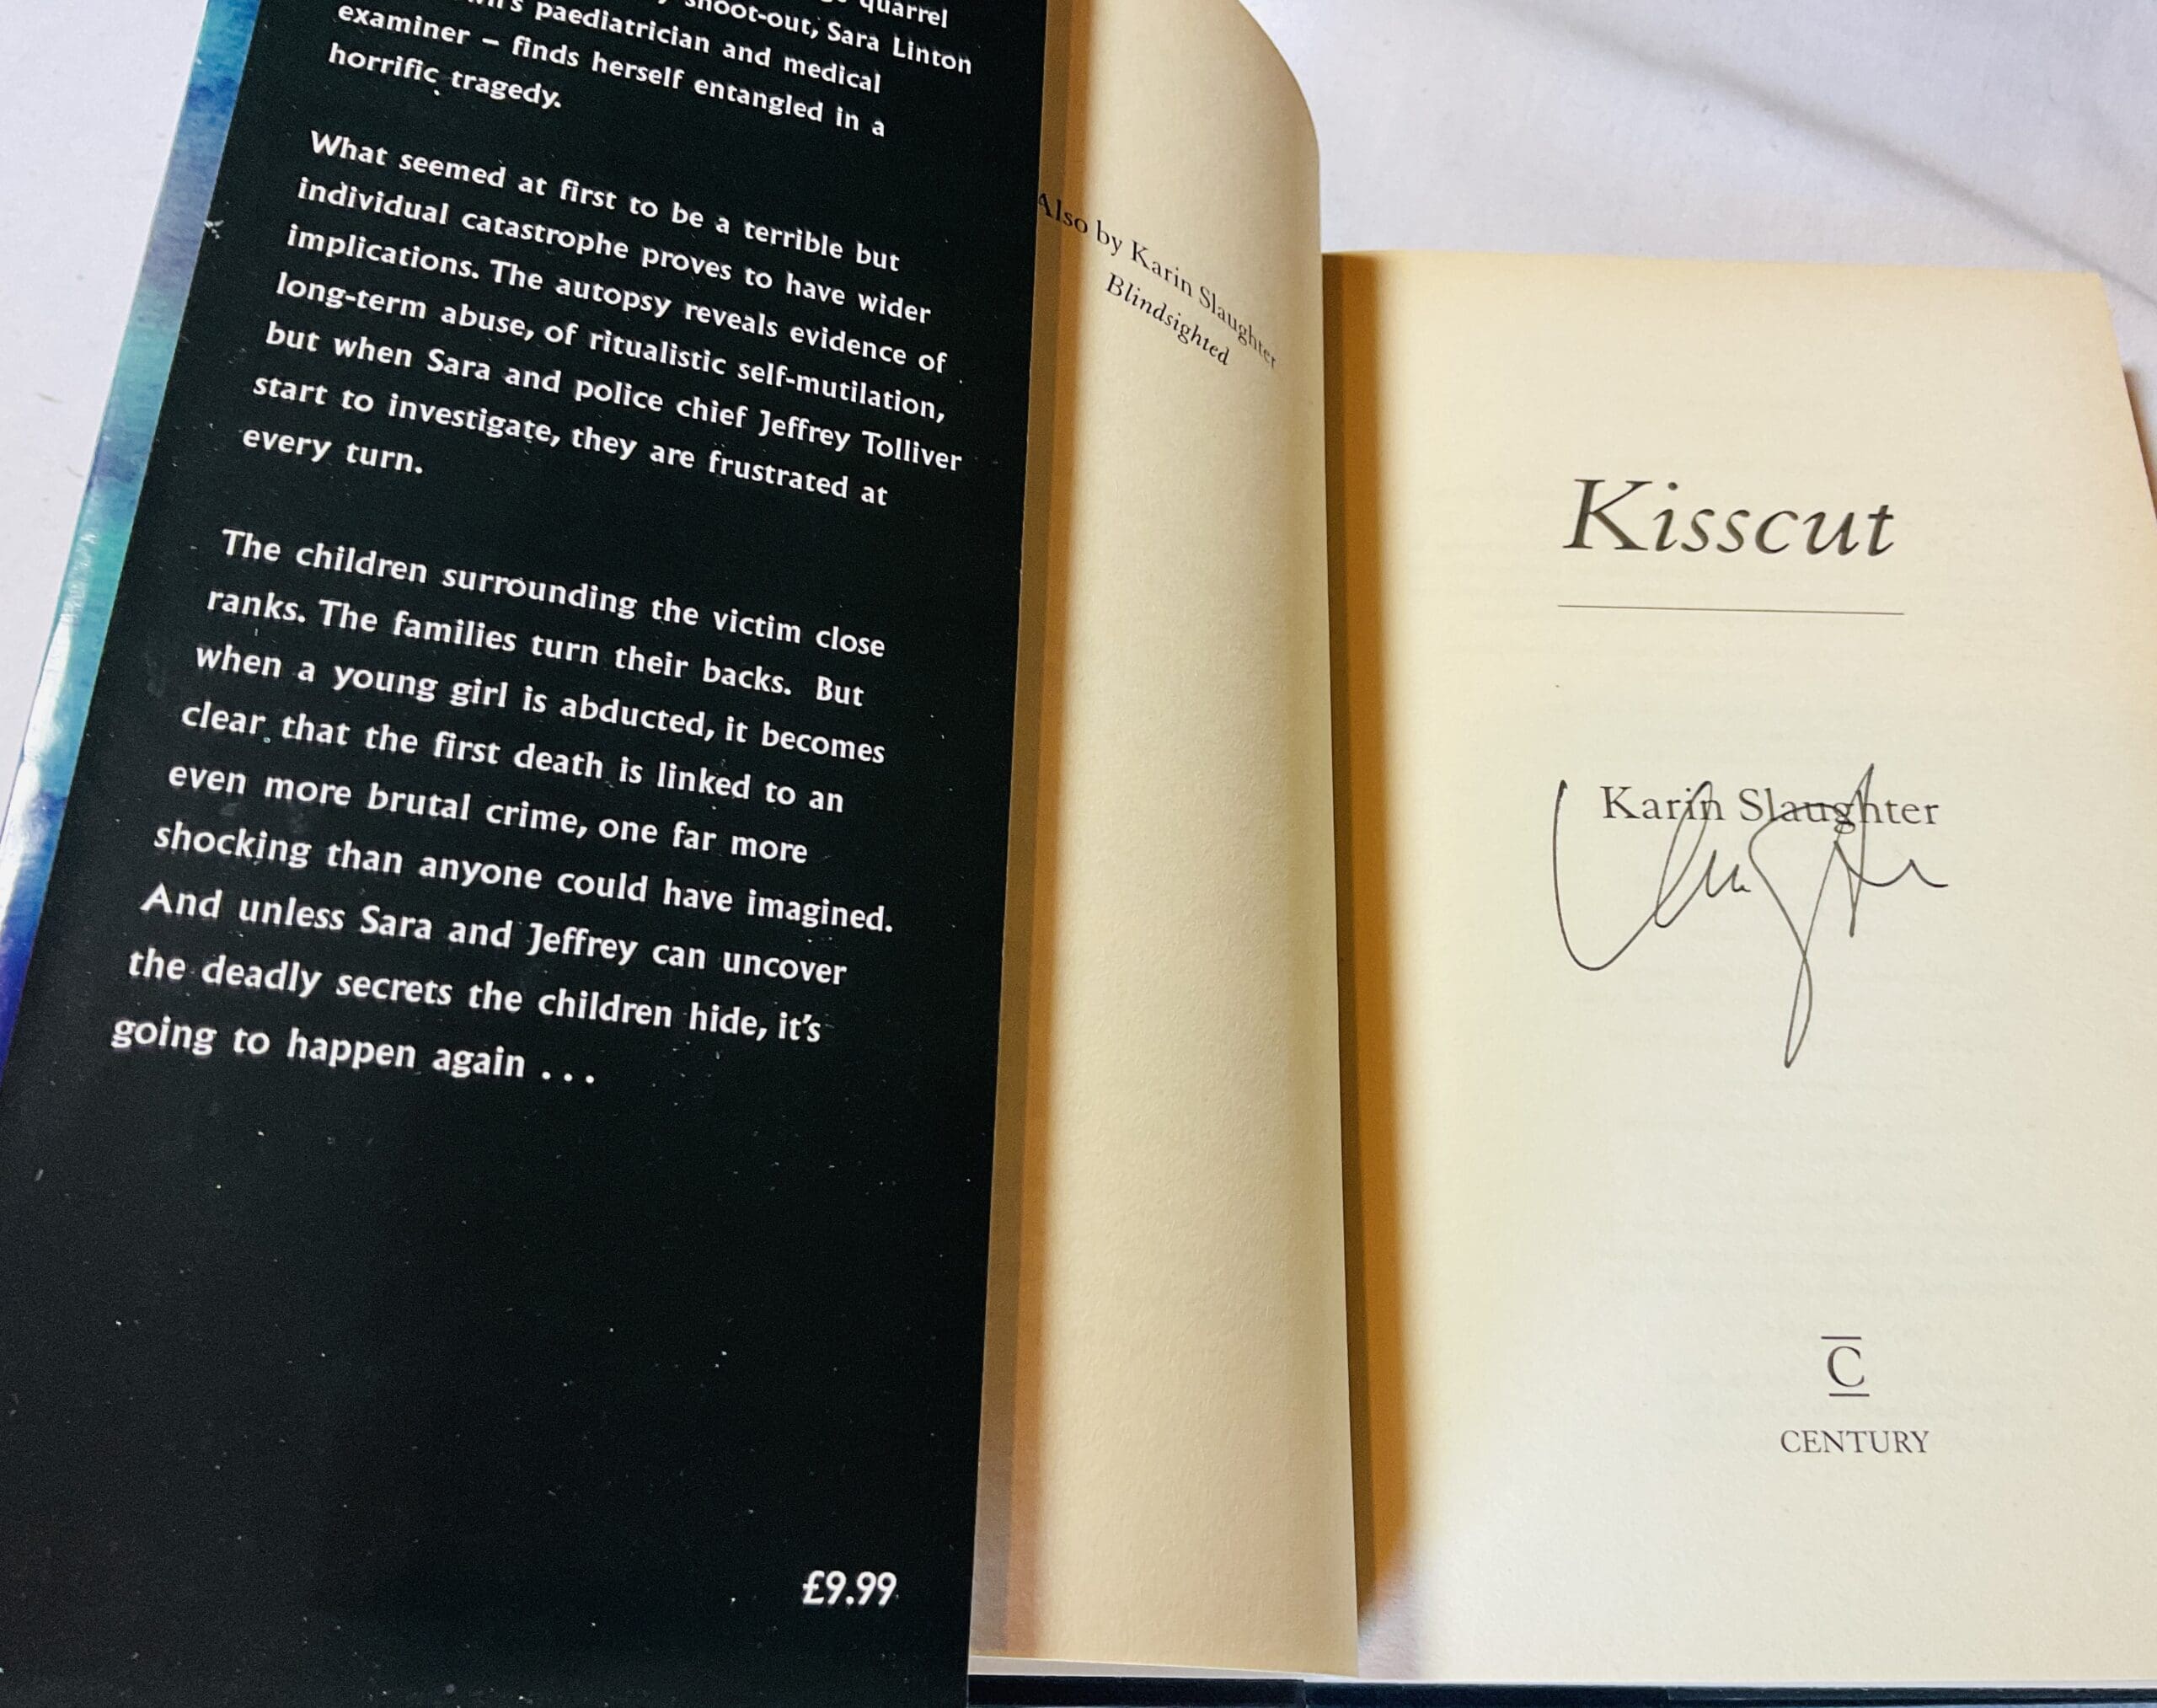 quarrel
shoot-out, Sara Linton
paediatrician and medical
examiner – finds herself entangled in a
horrific tragedy.
What seemed at first to be a terrible but
individual catastrophe proves to have wider
implications. The autopsy reveals evidence of
long-term abuse, of ritualistic self-mutilation,
but when Sara and police chief Jeffrey Tolliver
start to investigate, they are frustrated at
every turn.
The children surrounding the victim close
ranks. The families turn their backs. But
when a young girl is abducted, it becomes
clear that the first death is linked to an
even more brutal crime, one far more
shocking than anyone could have imagined.
And unless Sara and Jeffrey can uncover
the deadly secrets the children hide, it's
going to happen again . . .
£9.99
Also by Karin Slaughter
Blindsighted
Kisscut
Karin Slaughter
C
CENTURY